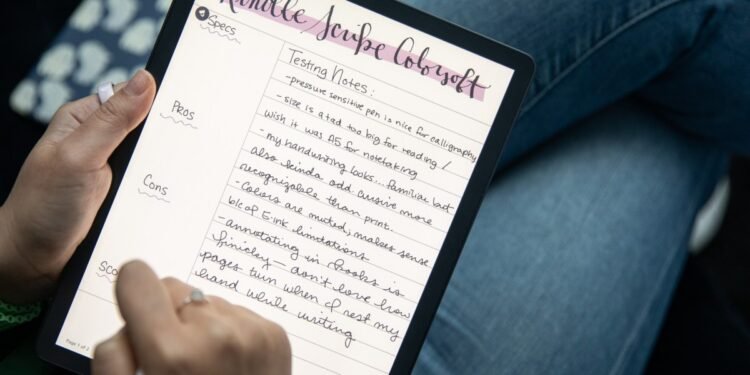 Kindle Scribe Colorsoft
Specs
Pros
Cons
Testing Notes:
-pressure sensitive pen is nice for calligraphy
-size is a tad too big for reading /
wish it was A5 for notetaking
-my handwriting looks... familiar but
also kinda odd. cursive more
recognizable than print.
-colors are muted, makes sense
b/c of E-ink limitations
-annotating in books is
finicky - don't love how
pages turn when I rest my
hand while writing
Page 1 of 2